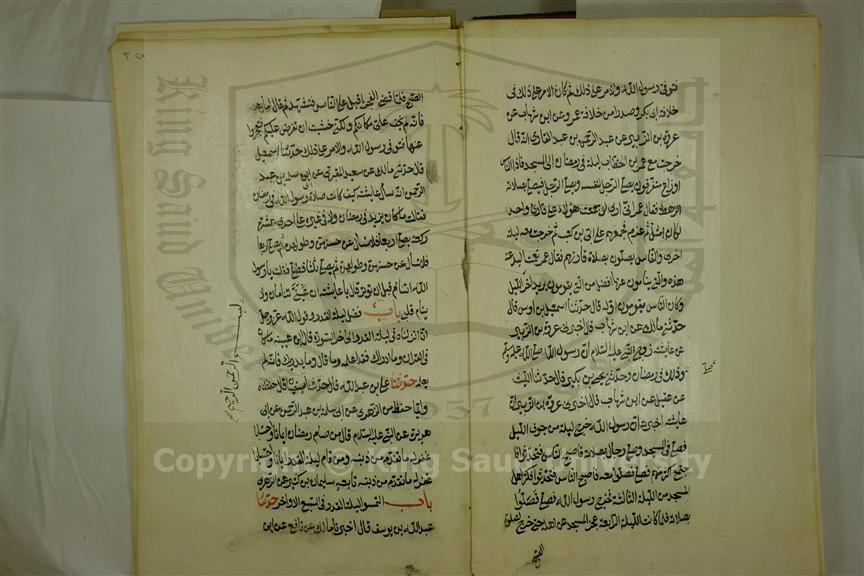 فتوفي رسول الله والامر على ذلك ثم كان الامر على ذلك في
خلافة ابي بكر وصدرا من خلافة عمر وعن ابن شهاب عن
عروة بن الزبير عن عبد الرحمن بن عبد القاري انه قال
خرجت مع عمر بن الخطاب ليلة في رمضان الى المسجد فاذا الناس
اوزاع متفرقون يصلي الرجل لنفسه ويصلي الرجل فيصلي بصلاته
الرهط فقال عمر اني ارى لو جمعت هؤلاء على قارئ واحد
لكان امثل ثم عزم فجمعهم على ابي بن كعب ثم خرجت معه ليلة
اخرى والناس يصلون بصلاة قارئهم فقال عمر نعمت البدعة
هذه والتي ينامون عنها افضل من التي يقومون يريد آخر الليل
وكان الناس يقومون اوله قال حدثنا اسمعيل بن اويس قال
حدثني مالك عن ابن شهاب قال اخبرني عروة بن الزبير
عن عائشة زوج النبي عليه السلام ان رسول الله صلى الله عليه وسلم
وذلك في رمضان وحدثني يحيى بن بكير قال حدثنا الليث
عن عقيل عن ابن شهاب قال اخبرني عروة بن الزبير ان
عائشة اخبرته ان رسول الله خرج ليلة من جوف الليل
فصلى في المسجد وصلى رجال بصلاته فاصبح الناس فتحدثوا فا
جتمع اكثر منهم فصلى فصلوا معه فاصبح الناس فتحدثوا فكثر اهل
المسجد من الليلة الثالثة فخرج رسول الله فصلى فصلوا
بصلاته فلما كانت الليلة الرابعة عجز المسجد عن اهله حتى خرج لصلوة
الصبح
الصبح فلما قضى الفجر اقبل على الناس فتشهد ثم قال اما بعد
فانه لم يخف علي مكانكم ولكني خشيت ان تفرض عليكم فتعجزوا
عنها فتوفي رسول الله والامر على ذلك حدثنا اسمعيل
قال حدثني مالك عن سعيد المقبري عن ابي سلمة بن عبد
الرحمن انه سأل عائشة كيف كانت صلاة رسول الله في رمضان
فقالت ما كان يزيد في رمضان ولا في غيره على احدى عشرة
ركعة يصلي اربعا فلا تسأل عن حسنهن وطولهن ثم يصلي اربعا
فلا تسأل عن حسنهن وطولهن ثم يصلي ثلثا فقلت يا رسول
الله اتنام قبل ان توتر قال يا عائشة ان عيني تنامان ولا
ينام قلبي باب فضل ليلة القدر وقول الله عز وجل
انا انزلناه في ليلة القدر الى آخر السورة قال ابن عيينة ما كان
في القرآن وما ادراك فقد اعلمه وما قال وما يدريك فانه لم
يعلمه حدثنا علي بن عبد الله قال حدثنا سفيان قال حفظناه
وايما حفظ من الزهري عن ابي سلمة بن عبد الرحمن عن ابي
هريرة عن النبي عليه السلام قال من صام رمضان ايمانا واحتسابا
غفر له ما تقدم من ذنبه ومن قام ليلة القدر ايمانا واحتسابا
غفر له ما تقدم من ذنبه تابعه سليمان بن كثير عن الزهري
باب التمسوا ليلة القدر في السبع الاواخر حدثنا
عبد الله بن يوسف قال اخبرنا مالك عن نافع عن ابن
بسم الله الرحمن الرحيم
King Saud University
1957
Copyright © King Saud University